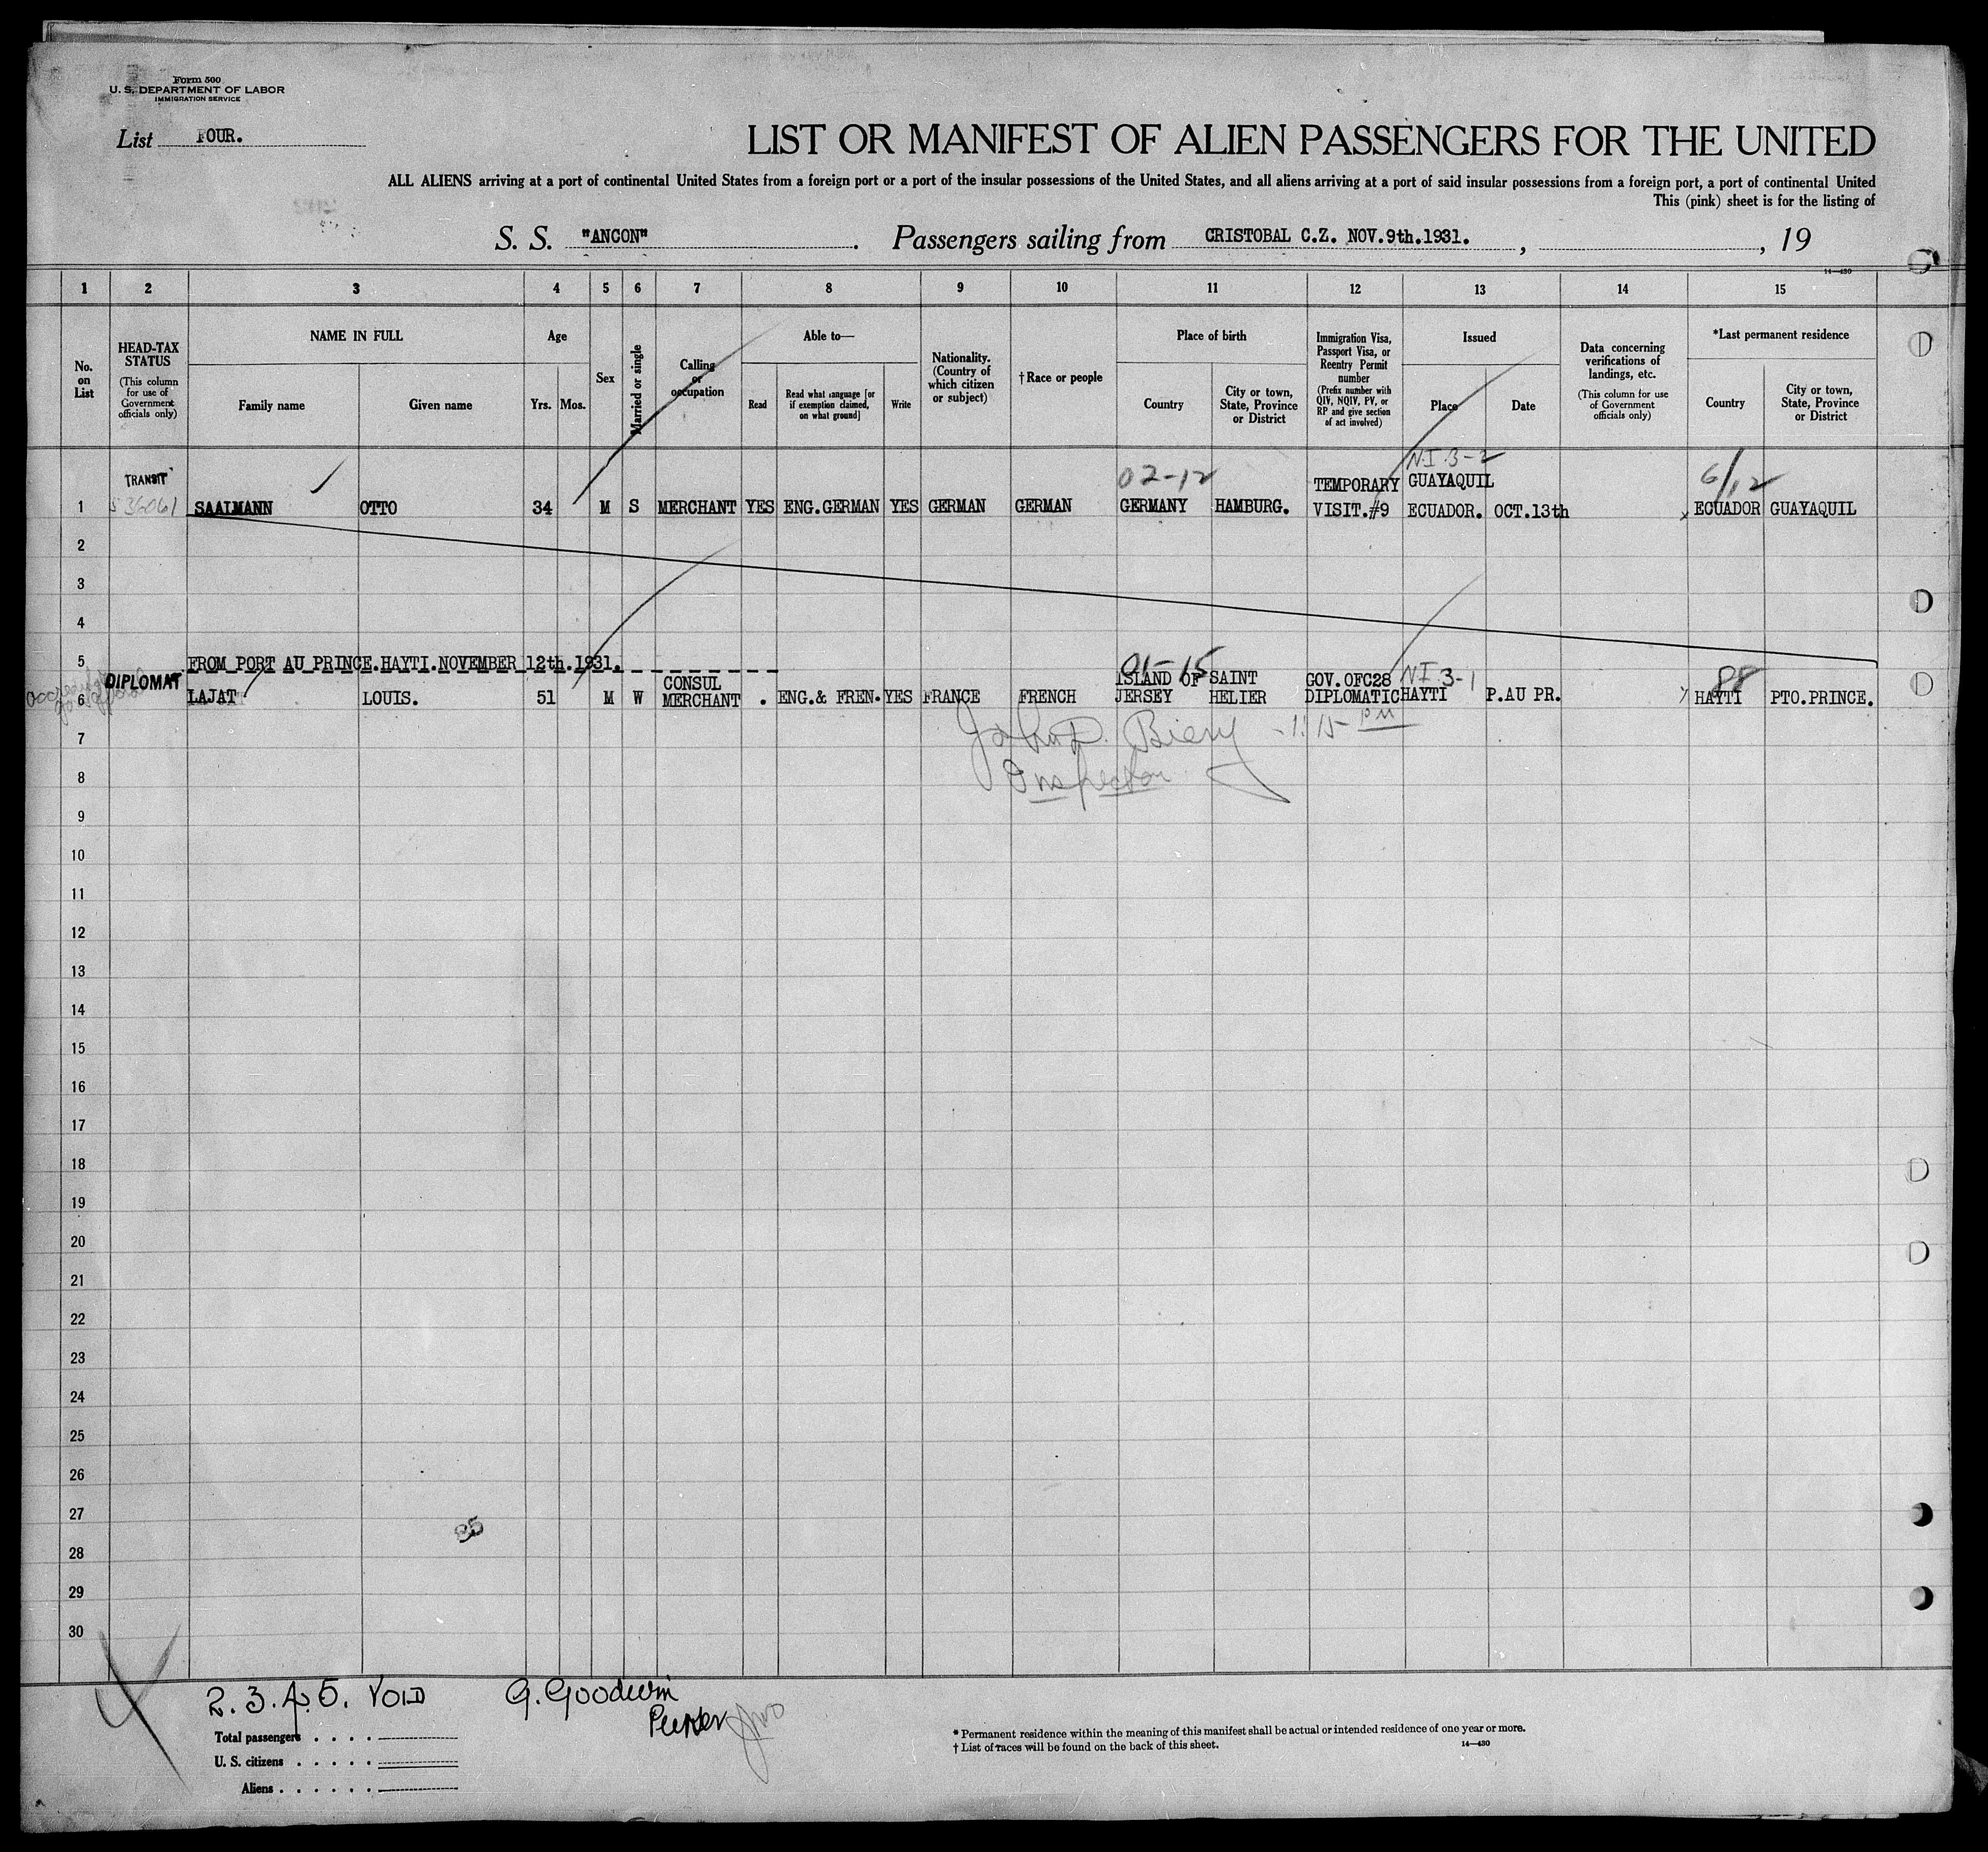 Form 500
U. S. DEPARTMENT OF LABOR
IMMIGRATION SERVICE
List FOUR.
LIST OR MANIFEST OF ALIEN PASSENGERS FOR THE UNITED
ALL ALIENS arriving at a port of continental United States from a foreign port or a port of the insular possessions of the United States, and all aliens arriving at a port of said insular possessions from a foreign port, a port of continental United
This (pink) sheet is for the listing of
S. S. "ANCON" . Passengers sailing from CRISTOBAL C.Z. NOV.9th.1931. , , 19
14—430
1 2 3 4 5 6 7 8 9 10 11 12 13 14 15
No. on List
HEAD-TAX STATUS
(This column for use of Government officials only)
NAME IN FULL
Family name Given name
Age
Yrs. Mos.
Sex
Married or single
Calling or occupation
Able to—
Read
Read what language [or if exemption claimed, on what ground]
Write
Nationality. (Country of which citizen or subject)
†Race or people
Place of birth
Country
City or town, State, Province or District
Immigration Visa, Passport Visa, or Reentry Permit number
(Prefix number with QIV, NQIV, PV, or RP and give section of act involved)
Issued
Place Date
Data concerning verifications of landings, etc.
(This column for use of Government officials only)
*Last permanent residence
Country
City or town, State, Province or District
TRANSIT 02-12 TEMPORARY N.I 3-2 GUAYAQUIL 6/12
1 536061 SAALMANN OTTO 34 M S MERCHANT YES ENG.GERMAN YES GERMAN GERMAN GERMANY HAMBURG. VISIT.#9 ECUADOR. OCT.13th x ECUADOR GUAYAQUIL
2
3
4
5 FROM PORT AU PRINCE.HAYTI.NOVEMBER 12th.1931.
DIPLOMAT CONSUL 01-15 ISLAND OF SAINT GOV.OFC28 N.I 3-1 88
6 LAJAT LOUIS. 51 M W MERCHANT . ENG.& FREN. YES FRANCE FRENCH JERSEY HELIER DIPLOMATIC HAYTI P.AU PR. HAYTI PTO.PRINCE.
7 John D. Biery - 1:15 PM
8 Inspector
9
10
11
12
13
14
15
16
17
18
19
20
21
22
23
24
25
26
27
85
28
29
30
2. 3. 4. 5. VOID G. Goodwin
Purser
Total passengers . . . .
U. S. citizens . . . . .
Aliens . . . . . .
* Permanent residence within the meaning of this manifest shall be actual or intended residence of one year or more.
† List of races will be found on the back of this sheet.
14—430